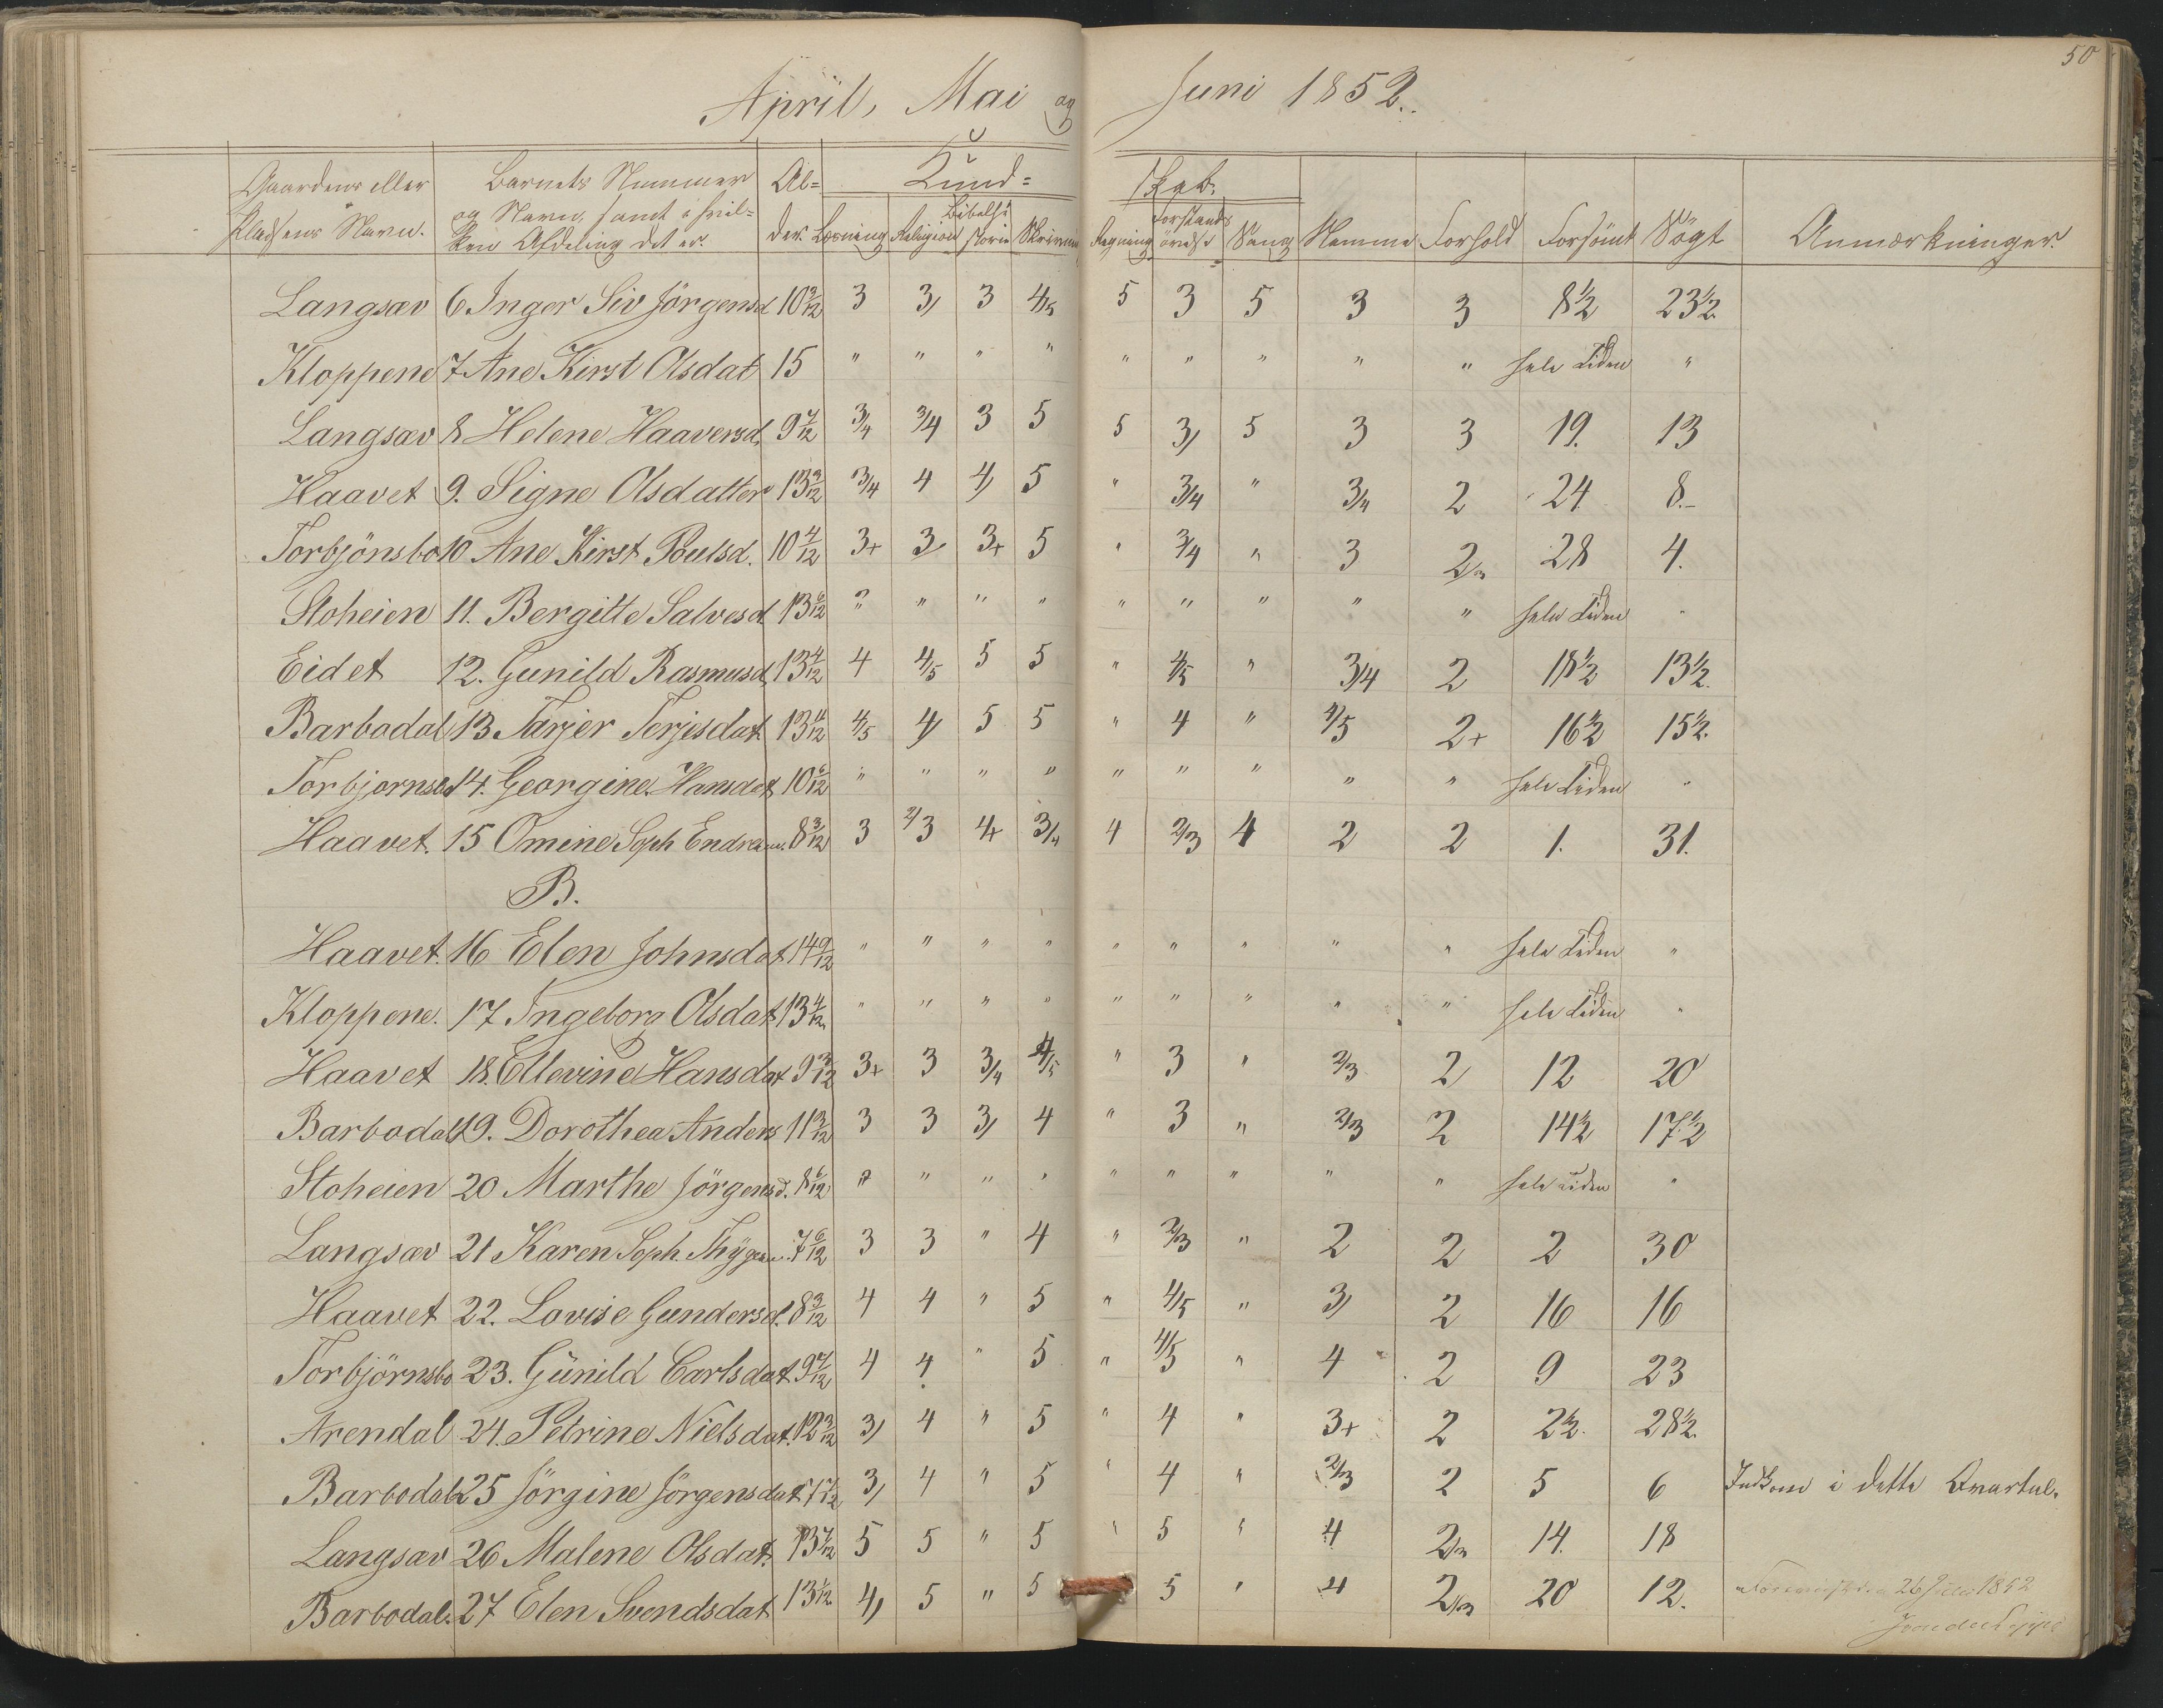 50
April, Mai og Juni 1852.
Gaardens eller Pladsens Navn. Barnets Nummer og Navn, samt i hvilken Afdeling det er. Alder. Kundskab. Læsning Religion Bibelhistorie Skrivning Regning Forstandsövelse Sang Nemme Forhold Forsömt Sögt Anmærkninger.
Langsæv 6 Inger Siv Jörgensd 10 3/12 3 3/ 3 4/5 5 3 5 3 3 8 1/2 23 1/2
Kloppene 7 Ane Kirst Olsdat 15 " " " " " " " " " hele Tiden "
Langsæv 8 Helene Haaversd. 9 7/12 3/4 3/4 3 5 5 3/ 5 3 3 19. 13
Haavet 9. Signe Olsdatter 13 3/12 3/4 4 4/ 5 " 3/4 " 3/4 2 24 8.-
Torbjönsbo 10 Ane Kirst Poulsd. 10 4/12 3+ 3/ 3+ 5 " 3/4 " 3 2/3 28 4.
Stoheien 11. Bergitte Salvesd. 13 6/12 " " " " " " " " " hele Tiden "
Eidet 12. Gunild Rasmusd. 13 4/12 4 4/5 5 5 " 4/5 " 3/4 2 18 1/2 13 1/2
Barbodal 13 Tarjer Terjesdat 13 4/12 4/5 4/ 5 5 " 4 " 4/5 2+ 16 1/2 15 1/2
Torbjornsbo 14. Georgine Hansdat 10 6/12 " " " " " " " " " hele Tiden "
Haavet. 15 Omine Soph Endres. 8 3/12 3 2/3 4+ 3/4 4 2/3 4 2 2 1. 31.
B.
Haavet. 16 Elen Johnsdat 14 9/12 " " " " " " " " " hele Tiden "
Kloppene. 17 Ingeborg Olsdat 13 4/12 " " " " " " " " " hele Tiden "
Haavet 18. Ellevine Hansdat 9 3/12 3+ 3 3/4 4/5 " 3 " 2/3 2 12 20
Barbodal 19. Dorothea Anders 11 3/12 3 3 3/ 4 " 3 " 2/3 2 14 1/2 17 1/2
Stoheien 20 Marthe Jörgensd. 8 6/12 " " " " " " " " " hele Tiden "
Langsæv 21 Karen Soph. 7 6/12 3 3 " 4 " 2/3 " 2 2 2 30
Haavet 22. Lovise Gundersd. 8 3/12 4 4 " 5 " 4/5 " 3/ 2 16 16
Torbjörnsbo 23. Günild Carlsdat 9 7/12 4 4 " 5 " 4/5 " 4 2 9 23
Arendal 24. Petrine Nielsdat. 12 3/12 3/ 4 " 5 " 4 " 3+ 2 2 1/2 28 1/2
Barbodal 25 Jörgine Jörgensdat 3/ 4 " 5 " 4 " 2/3 2 5 6 Indkom i dette Qvartal.
Langsæv 26 Malene Olsdat. 13 7/12 5 5 " 5 " 5 " 4 2/3 14. 18
Barbodal. 27 Elen Svendsdat 13 1/12 4/ 5 " 5 5 " 4 2/3 20 12. 26 Juli 1852